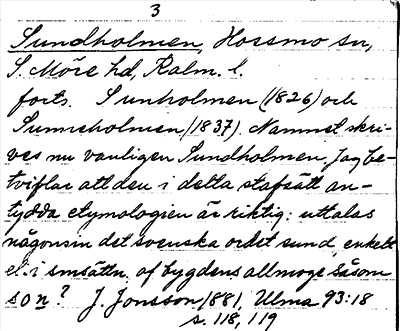 3
Sundholmen, Hossmo sn,
S. Möre hd, Kalm. l.
forts. Sunholmen (1826) och
Sunneholmen (1837). Namnet skri-
ves nu vanligen Sundholmen. Jag be-
tviflar att den i detta stafsätt an-
tydda etymologien är riktig: uttalas
någonsin det svenska ordet sund, enkelt
el. i smsättn, af bygdens allmoge såsom
son? J. Jonsson 1881, Ulma 93:18
s. 118, 119